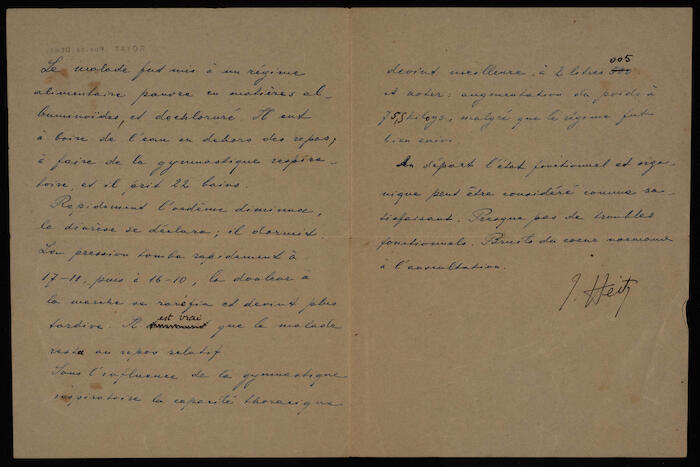 Le malade fut mis à un régime
alimentaire pauvre en matières al-
buminoïdes, et dechloruré. Il eut
à boire de l'eau en dehors des repas;
à faire de la gymnastique respira-
toire, et il prit 22 bains.
Rapidement l'oedème diminua,
la diurèse se déclara; il dormit.
La pression tomba rapidement à
17-11, puis à 16-10, la douleur à
la marche se raréfia et devint plus
tardive. Il est vrai que le malade
resta au repos relatif
Sous l'influence de la gymnastique
respiratoire la capacité thoracique
devint meilleure, à 2 litres 005
A noter: augmentation du poids à
75,5 kilogs, malgré que le régime fut
bien suivi.
Au départ l'état fonctionnel et orga-
nique peut être considéré comme sa-
tisfaisant. Presque pas de troubles
fonctionnels. Bruits du coeur normaux
à l'auscultation.
J. Heitz